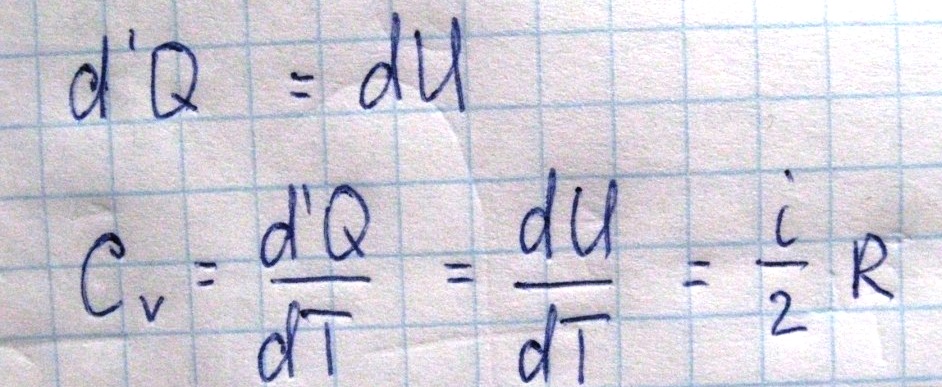 d'Q = dU
C_v = d'Q/dT = dU/dT = i/2 R